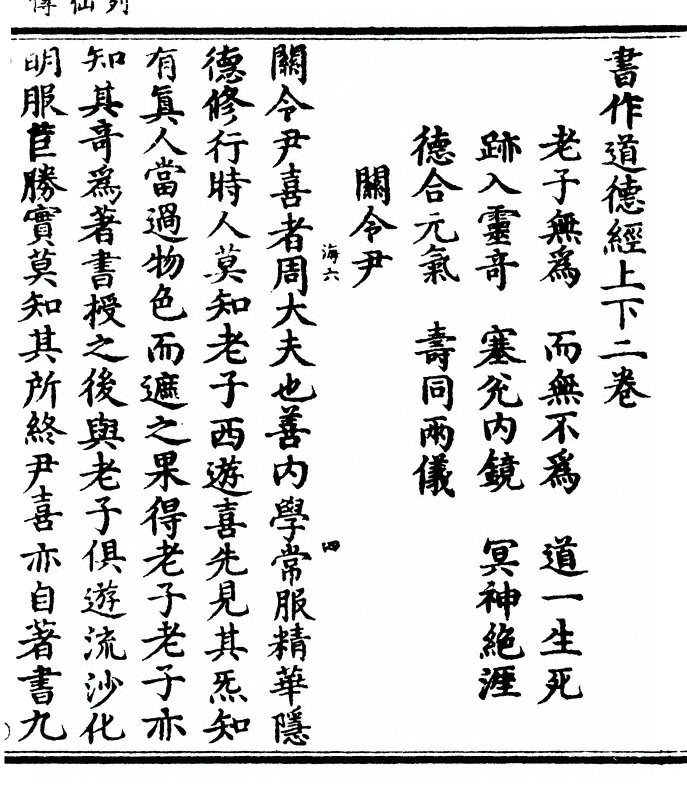 列仙傳
書作道德經上下二卷
老子無爲　而無不爲　道一生死
跡入靈奇　塞兊内鏡　冥神絶涯
德合元氣　壽同兩儀
關令尹
海六
四
關令尹喜者周大夫也善内學常服精華隱
德修行時人莫知老子西遊喜先見其炁知
有眞人當過物色而遮之果得老子老子亦
知其奇爲著書授之後與老子俱遊流沙化
胡服苣勝實莫知其所終尹喜亦自著書九